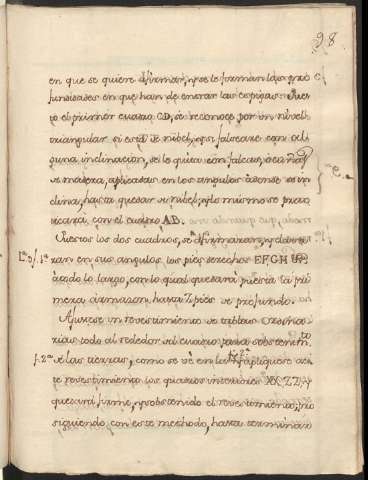 98
en que se quiere afirmar, y se le forman las pro
fundidades en que han de entrar las espigas. Pues
to el primer cuadro CD, se reconoce por un nibel
triangular si está à nibel, y si falseare con al
guna inclinacion, se lo quita con falcas, o cuñas
de madera, aplicadas en los angulos adonde se in
clina, hasta quedar à nibel; y lo mismo se prac
ticará con el cuadro AB.
Puestos los dos cuadros, se afirmaran, y
ran en sus angulos los pies derechos EFGH
todo lo largo, con lo qual quedará puesta la pri
mera armazon, hasta 7 pies de profundo.
Ajustese un revestimiento de tablas
rias todo al rededor del cuadro, para sostenim.to
de las tierras, como se vé en la fig.
te revestimiento los quadros interiores XX, ZZ, y
quedará firme, y sostenido el revestimiento;
siguiendo con este methodo, hasta terminar